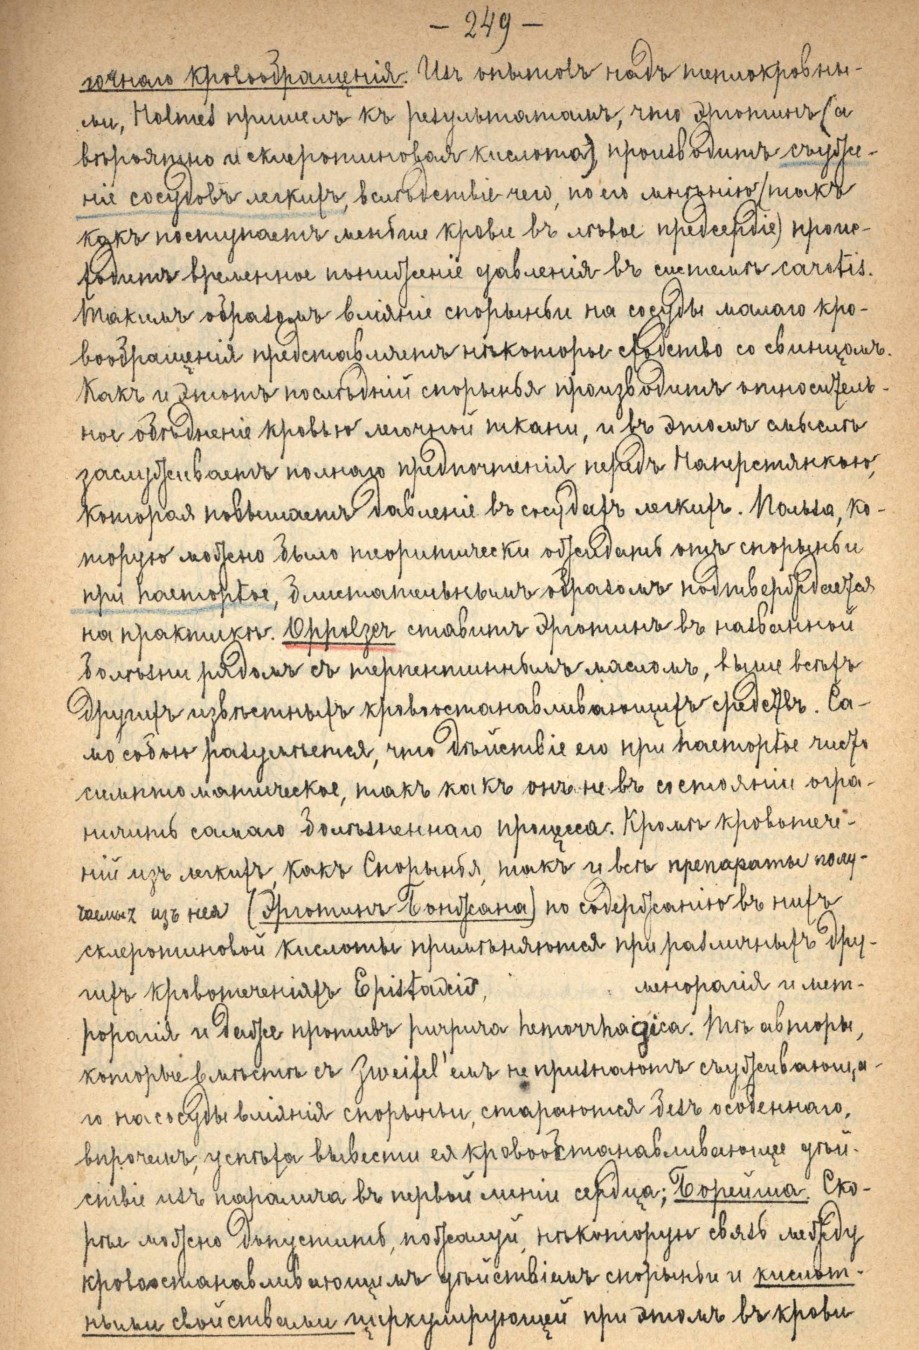 — 249 —
гочнаго кровообращенія. Изъ опытовъ надъ теплокровны-
ми, Holmes пришелъ къ результатамъ, что эрготинъ (а
вѣроятно и склеротиновая кислота), производитъ съуже-
ніе сосудовъ легкихъ, вслѣдствіе чего, по его мнѣнію (такъ
какъ поступаетъ меньше крови въ лѣвое предсердіе) проис-
ходитъ временное пониженіе давленія въ системѣ carotis.
Такимъ образомъ вліяніе спорыньи на сосуды малаго кро-
вообращенія представляетъ нѣкоторое сходство со свинцомъ.
Какъ и этотъ послѣдній спорынья производитъ относитель-
ное обѣдненіе кровью легочной ткани, и въ этомъ смыслѣ
заслуживаетъ полнаго предпочтенія передъ Наперстянкою,
которая повышаетъ давленіе въ сосудахъ легкихъ. Польза, ко-
торую можно было теоритически ожидать отъ спорыньи
при haemoptoe, блистательнымъ образомъ подтверждается
на практикѣ. Oppolzer ставитъ эрготинъ въ названной
болѣзни рядомъ съ терпентиннымъ масломъ, выше всѣхъ
другихъ извѣстныхъ кровоостанавливающихъ средствъ. Са-
мо собою разумѣется, что дѣйствіе его при haemoptoe чисто
симптоматическое, такъ какъ онъ не въ состояніи огра-
ничить самаго болѣзненнаго процесса. Кромѣ кровотече-
ній изъ легкихъ, какъ Спорынья, такъ и всѣ препараты полу-
чаемые изъ нея (Эрготинъ Бонжана) по содержанію въ нихъ
склеротиновой кислоты примѣняются при различныхъ дру-
гихъ кровотеченіяхъ Epistaxis, менорагія и мет-
рорагія и даже противъ purpura hemorrhagica. Тѣ авторы,
которые вмѣстѣ съ Zweifel'емъ не признаютъ съуживающа-
го на сосуды вліянія спорыньи, стараются безъ особеннаго,
впрочемъ, успѣха вывести ея кровоостанавливающее дѣй-
ствіе изъ паралича въ первой линіи сердца; Борейша. Ско-
рѣе можно допустить, пожалуй, нѣкоторую связь между
кровоостанавливающимъ дѣйствіемъ спорыньи и кислот-
ными свойствами циркулирующей при этомъ въ крови